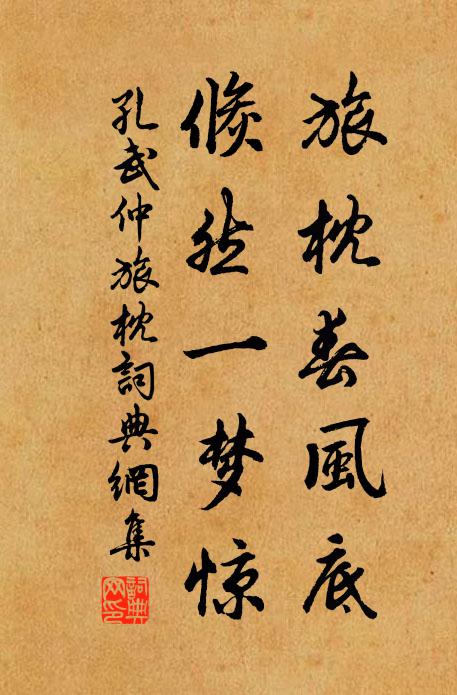 旅枕春風底
倏然一梦惊
孔武仲旅枕詞典網集
詞典
网印